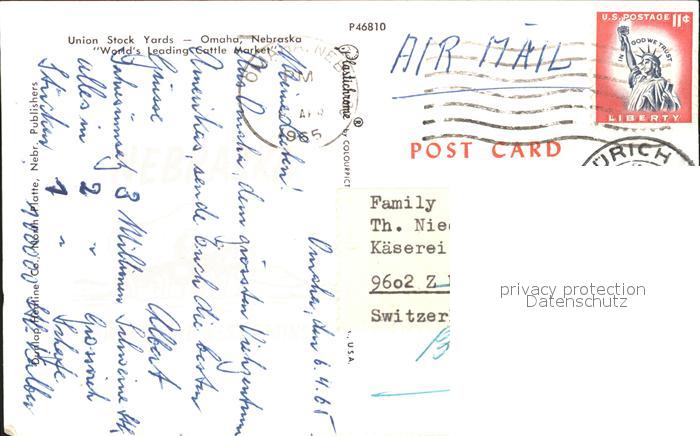 Union Stock Yards — Omaha, Nebraska
"World's Leading Cattle Market"
P46810
AIR MAIL
U.S. POSTAGE 11¢
IN GOD WE TRUST
LIBERTY
POST CARD
1965
Plastichrome ®
BY COLOURPICT
U.S.A.
Family
Th. Nie
Käserei
9602 Z
Switzer
privacy protection
Datenschutz
Omaha, den 6.4.65
Meine Lieben!
Aus Omaha, dem grössten Viehzentrum
Amerikas, sende Euch die besten
Grüsse Albert
3 Millionen Schweine
alles in 2 " Grossvieh
1 " Schafe
Kälber
Dunlap-Henline Co., North Platte, Nebr. Publishers